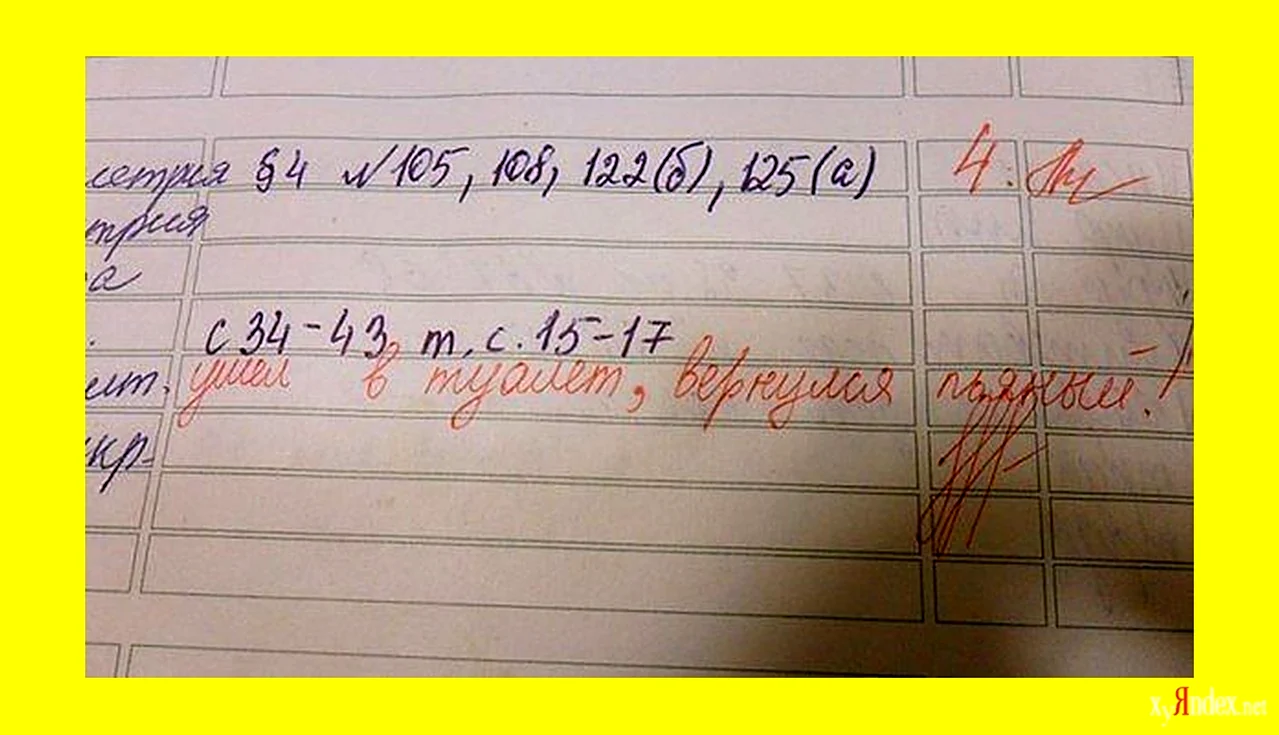 метрия §4 №105, 108, 122(б), 125(а) 4.
трия
а
с 34-43, т. с. 15-17
ит. ушел в туалет, вернулся пьяный!
кр-
xyЯndex.net